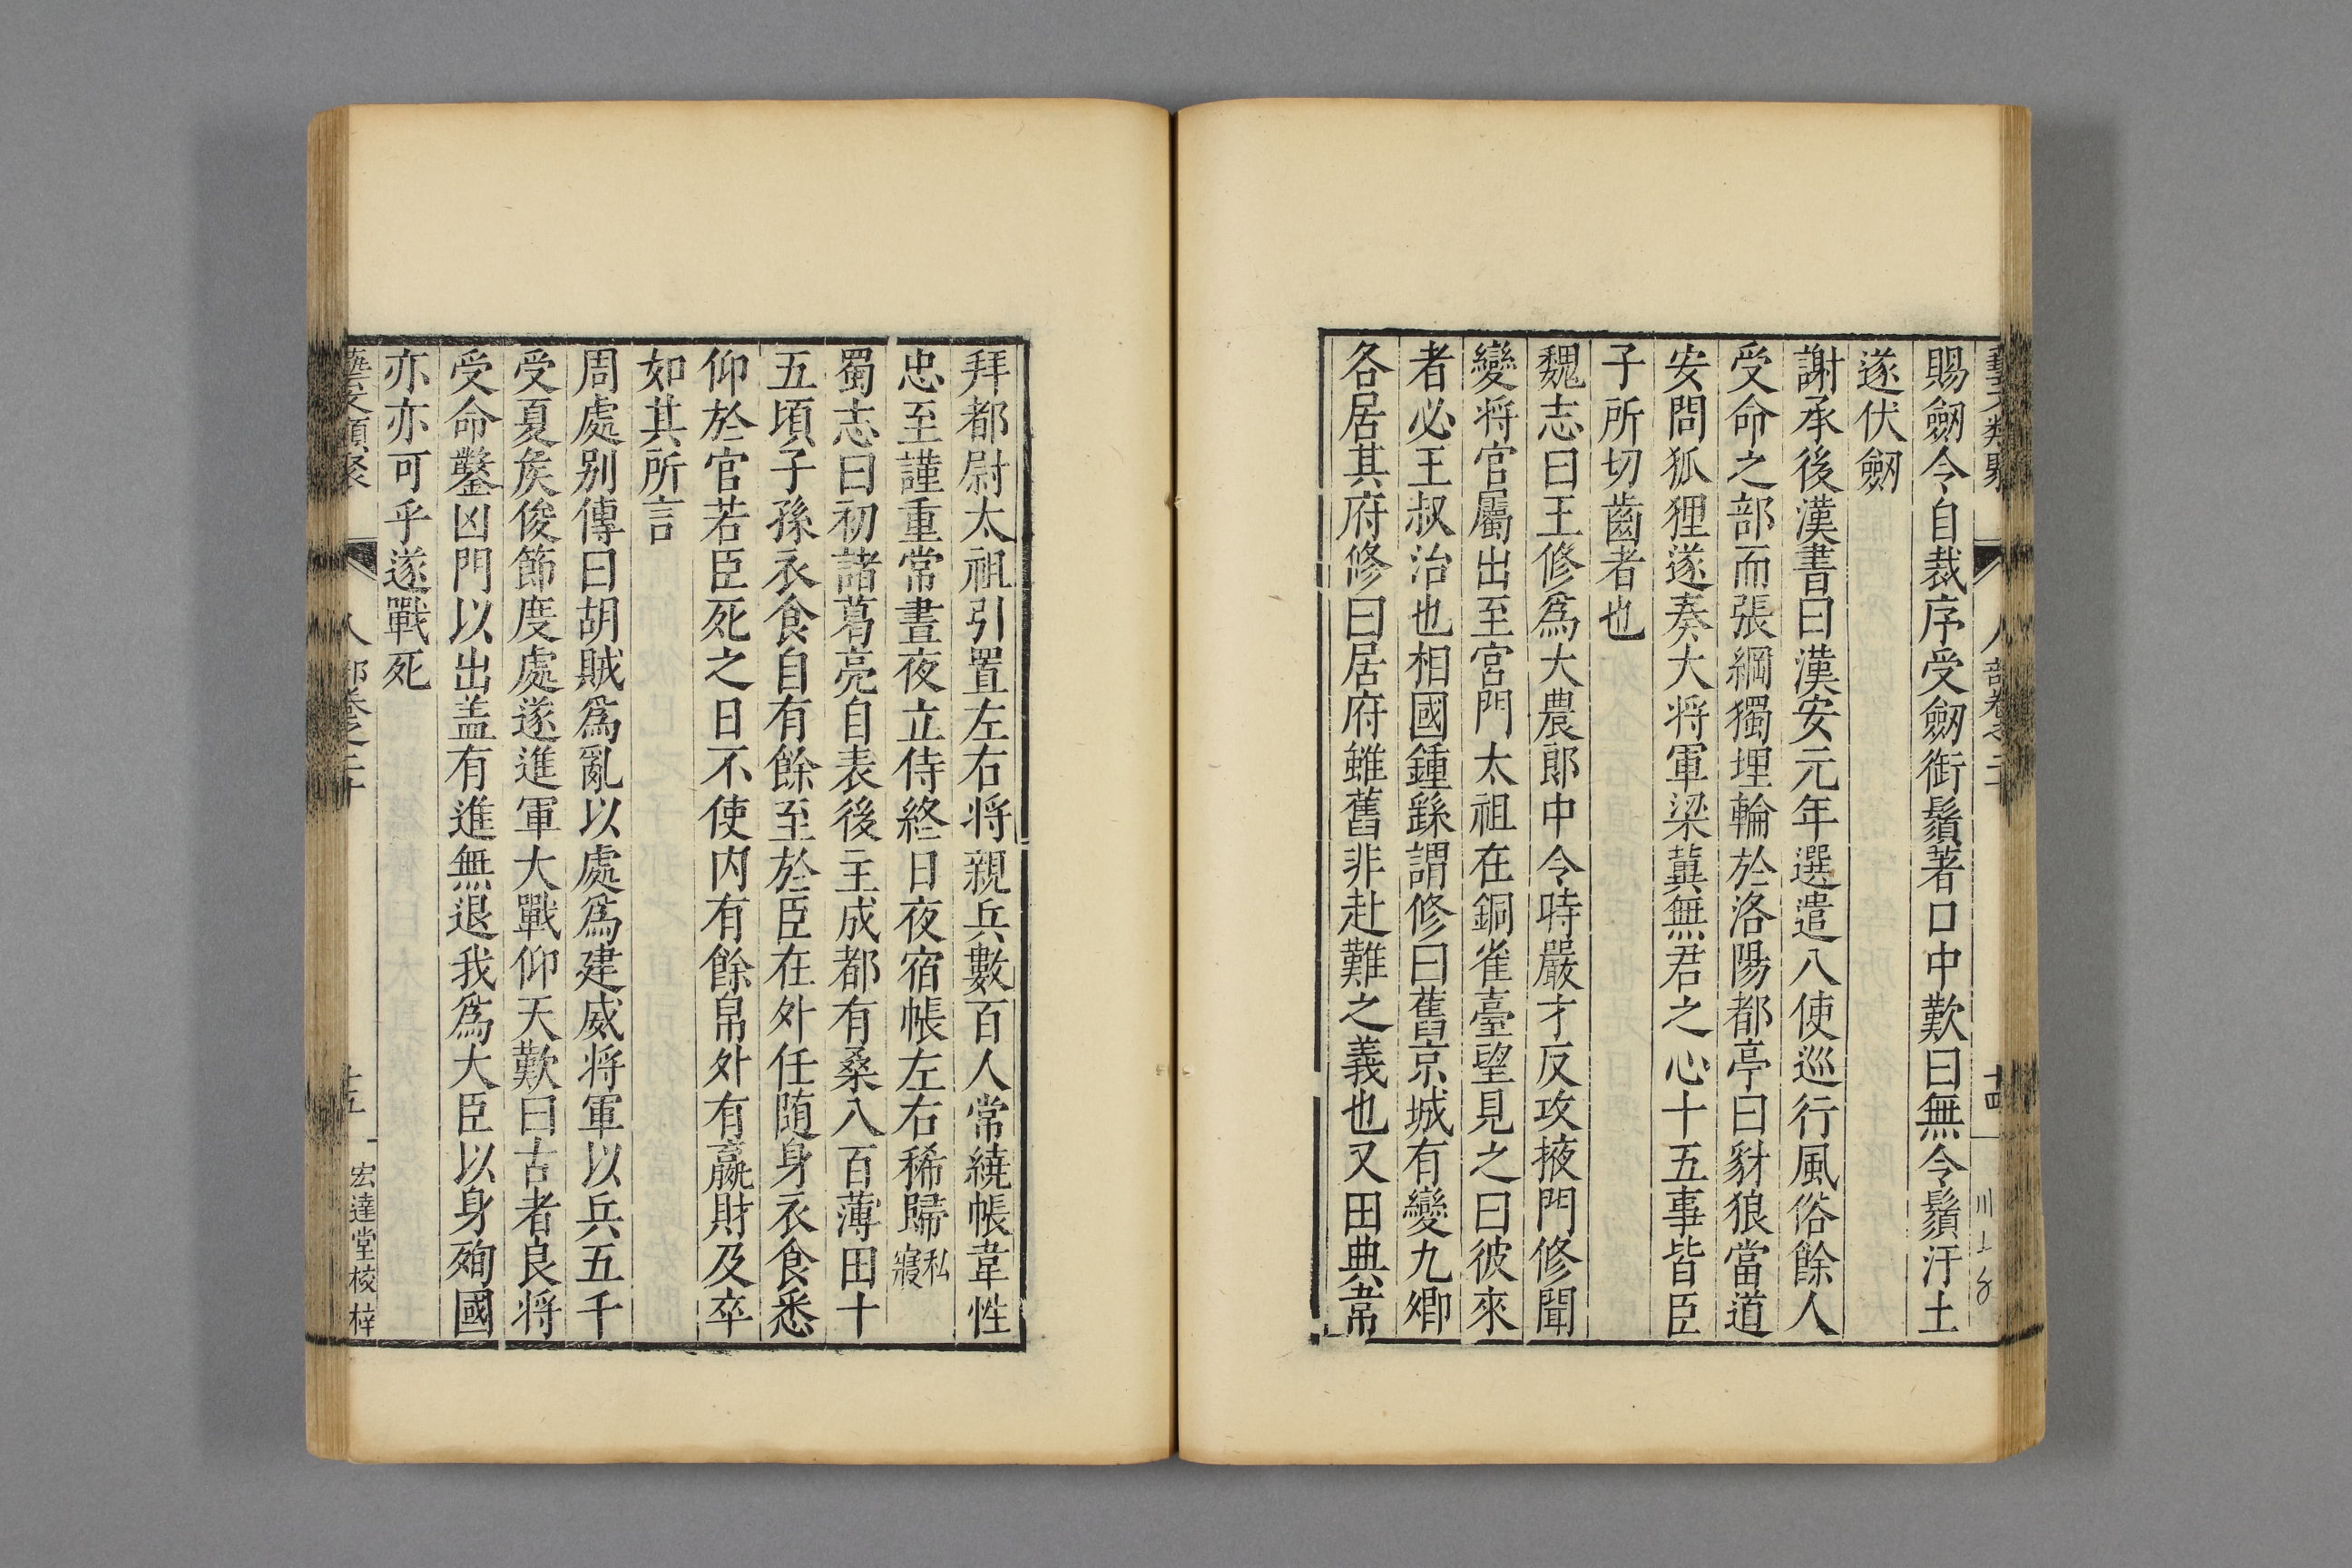 賜劒令自裁序受劒銜鬚著口中歎曰無令鬚汙土
遂伏劒
謝承後漢書曰漢安元年選遣八使巡行風俗餘人
受命之部而張綱獨埋輪於洛陽都亭曰豺狼當道
安問狐狸遂奏大將軍梁冀無君之心十五事皆臣
子所切齒者也
魏志曰王修爲大農郎中令時嚴才反攻掖門修聞
變將官屬出至宮門太祖在銅雀臺望見之曰彼來
者必王叔治也相國鍾繇謂修曰舊京城有變九卿
各居其府修曰居府雖舊非赴難之義也又田典常
拜都尉太祖引置左右將親兵數百人常繞帳韋性
忠至謹重常晝夜立侍終日夜宿帳左右稀歸私寢
蜀志曰初諸葛亮自表後主成都有桑八百薄田十
五頃子孫衣食自有餘至於臣在外任随身衣食悉
仰於官若臣死之日不使内有餘帛外有贏財及卒
如其所言
周處别傳曰胡賊爲亂以處爲建威將軍以兵五千
受夏矦俊節度處遂進軍大戰仰天歎曰古者良將
受命鑿凶門以出盖有進無退我爲大臣以身殉國
亦亦可乎遂戰死
藝文類聚 人部卷之二十 十五 宏達堂校梓